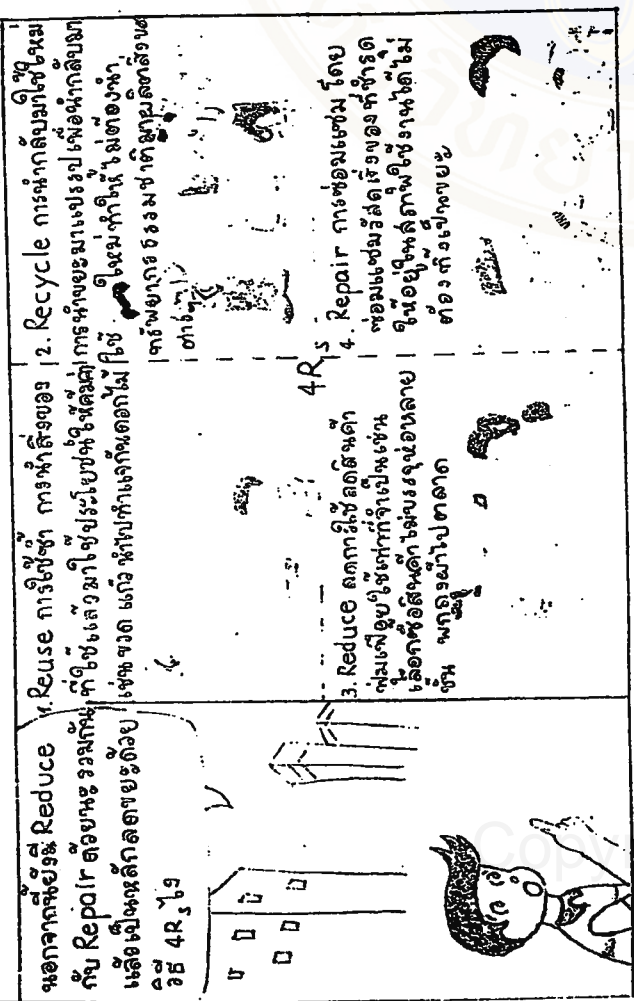 นอกจากนี้ยังมี Reduce
กับ Repair ด้วยนะ รวมกัน
แล้วเป็นหลักลดขยะด้วย
วิธี 4Rs ไง
1. Reuse การใช้ซ้ำ การนำสิ่งของ
ที่ใช้แล้วมาใช้ประโยชน์ให้คุ้มค่า
เช่นขวด แก้ว นำไปทำแจกันดอกไม้
2. Recycle การนำกลับมาใช้ใหม่
การนำขยะมาแปรรูปเพื่อนำกลับมา
ใช้ ใหม่ทำให้ไม่ต้องนำ
ทรัพยากรธรรมชาติมาผลิตสิ่งของ
ต่างๆ
4Rs
3. Reduce ลดการใช้ ลดสินค้า
ฟุ่มเฟือยใช้เท่าที่จำเป็นเช่น
เลือกซื้อสินค้าไม่บรรจุห่อหลาย
ชั้น พกถุงผ้าไปตลาด
4. Repair การซ่อมแซม โดย
ซ่อมแซมวัสดุสิ่งของที่ชำรุด
ให้อยู่ในสภาพใช้งานได้ไม่
ต้องทิ้งเป็นขยะ
Copy